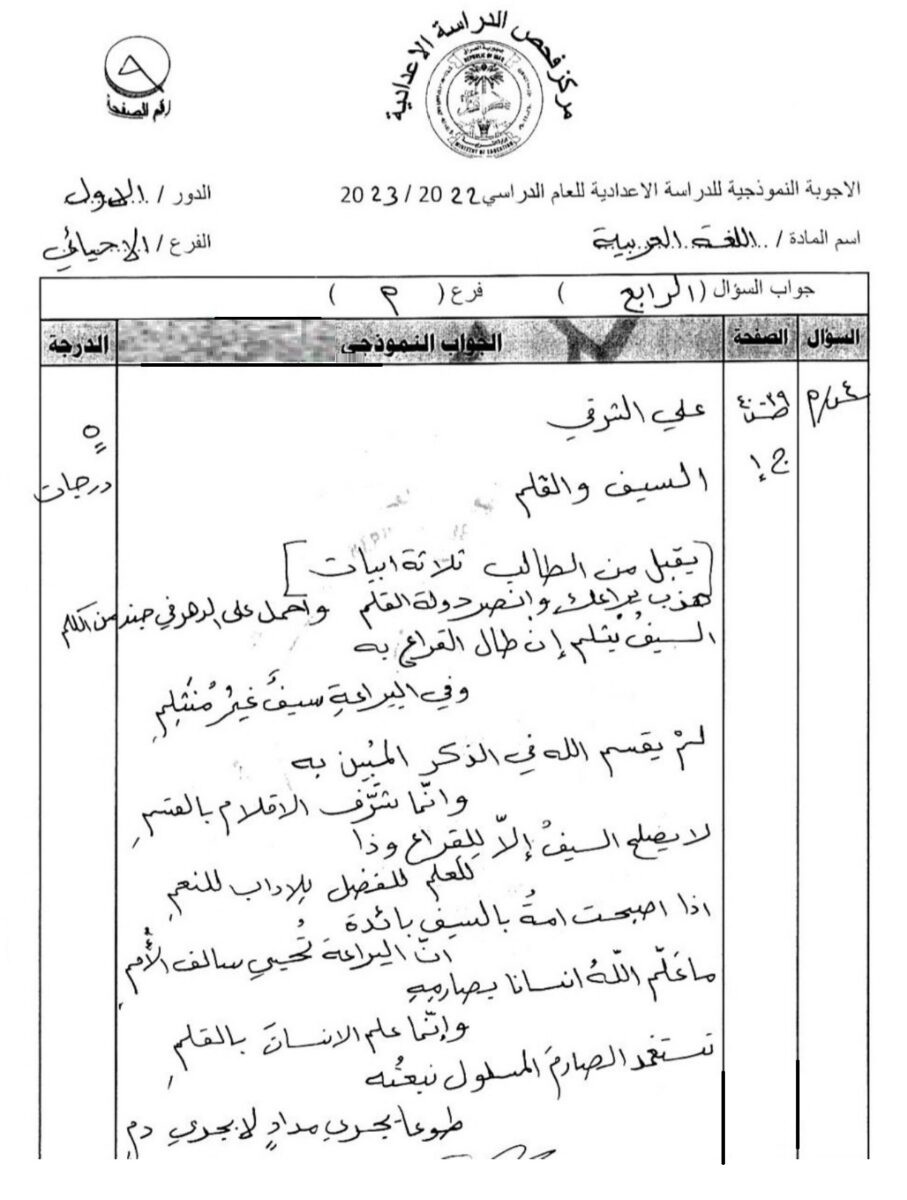 مركز فحص الدراسة الاعدادية
جمهورية العراق
REPUBLIC OF IRAQ
MINISTRY OF EDUCATION
٨
رقم الصفحة
الاجوبة النموذجية للدراسة الاعدادية للعام الدراسي 2022 / 2023
الدور / الاول
اسم المادة / اللغة العربية
الفرع / الاحيائي
جواب السؤال ( الرابع ) فرع ( م )
السؤال الصفحة الجواب النموذجي الدرجة
علي الشرقي
٥
درجات
السيف والقلم
[يقبل من الطالب ثلاثة ابيات]
هذب يراعك وانصر دولة القلم واحمل على الدهر في جند من الكلم
السيفُ يُثلم إن طال القراع به
وفي اليراعةِ سيفٌ غيرُ مُنثَلِمِ
لمْ يقسم الله في الذكر المُبين به
وانّما شرَّف الاقلام بالقسمِ
لا يصلح السيفُ إلاّ لِلقراع وذا
للعلم للفضل للاداب للنعمِ
اذا اصبحت امةُ بالسيف بائدة
انّ اليراعة تُحيي سالف الأُممِ
ما عَلّم اللّهُ انسانا بصارمِهِ
وإنّما علم الانسانَ بالقلمِ
تستغمد الصارمَ المسلول نبعتُه
طوعا يجري مدادٍ لا يجري دمِ